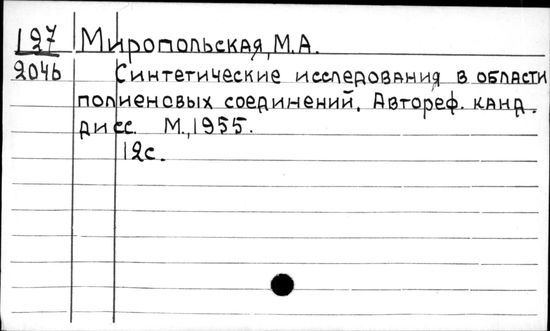 127 Миропольская, М.А.
2046 Синтетические исследования в области
полиеновых соединений. Автореф. канд.
дисс. М., 1955.
12с.